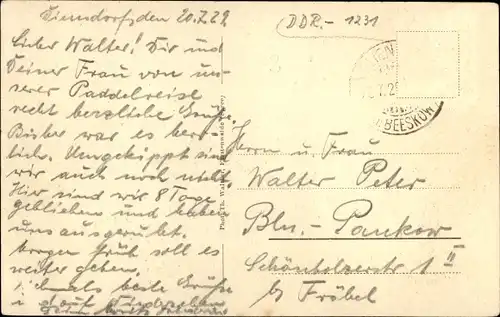 den 20.7.29
Lieber Walter! Dir und
Deiner Frau von un-
serer Paddelreise
recht herzliche Grüße.
Bisher war es herr-
lich. Umgekippt sind
wir auch noch nicht.
Hier sind wir 8 Tage
geblieben und haben
uns ausgeruht.
Morgen früh soll es
weiter gehen.
beste Grüße
u. auf Wiedersehen
DDR.- 1231
BEESKOW
Herrn u. Frau
Walter Peter
Bln.- Pankow
Schönholzerstr 1 II
b/ Fröbel